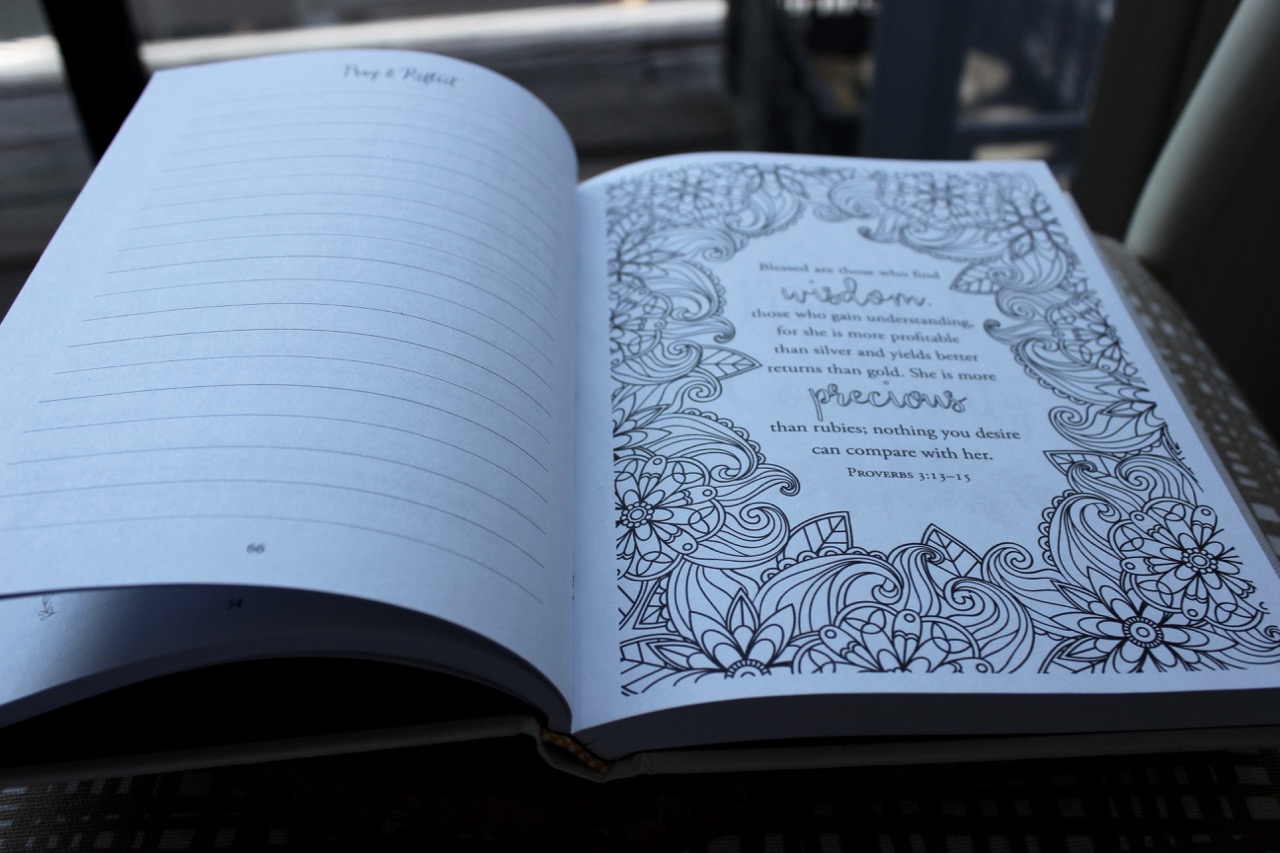 Pray & Reflect
66
54
Blessed are those who find
wisdom,
those who gain understanding,
for she is more profitable
than silver and yields better
returns than gold. She is more
precious
than rubies; nothing you desire
can compare with her.
Proverbs 3:13–15